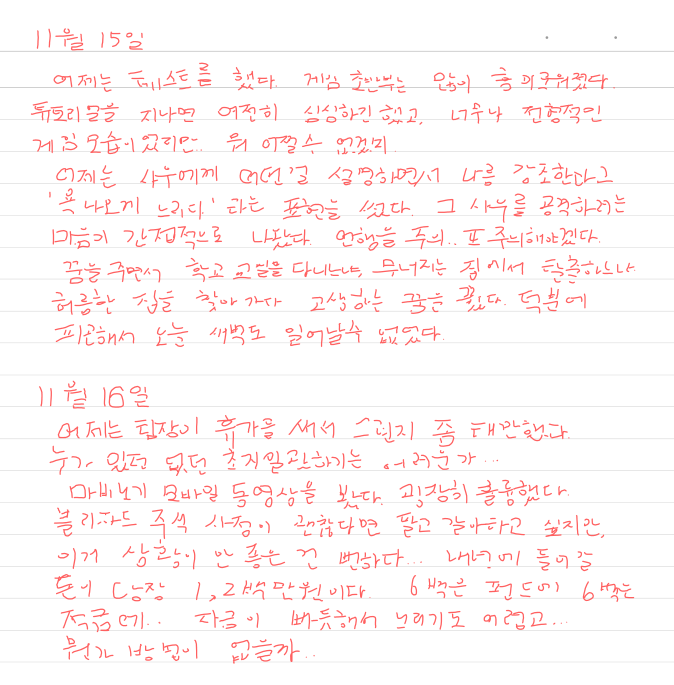 11월 15일
어제는 테스트를 했다. 게임 초반부는 많이 흥미로워졌다.
튜토리얼을 지나면 여전히 심심하긴 했고, 너무나 전형적인
게임 모습이 있지만.. 뭐 어쩔 수 없겠지.
어제는 사우에게 어떤 걸 설명하면서 나름 강조한다고
'욕 나오게 느리다' 라는 표현을 썼다. 그 사우를 공격하려는
마음이 간접적으로 나왔나. 언행을 주의.. 또 주의해야겠다.
꿈을 꾸면서 학교 교실을 다니느니, 무너지는 집에서 탈출하느니
허름한 집을 찾아가다 고생하는 꿈을 꿨다. 덕분에
피곤해서 오늘 새벽도 일어날 수 없었다.
11월 16일
어제는 팀장이 휴가를 써서 그런지 좀 태만했다.
누가 있던 없던 초지일관하기는 어려운가...
마비노기 모바일 동영상을 봤다. 굉장히 훌륭했다.
블리자드 주식 사정이 괜찮다면 팔고 갈아타고 싶지만,
이거 상황이 안 좋은 건 뻔하다... 내년에 들어갈
돈이 당장 1,2백만원이다. 6백은 펀드에 6백은
적금에.. 자금이 빠듯해서 누리기도 어렵고...
뭔가 방법이 없을까..